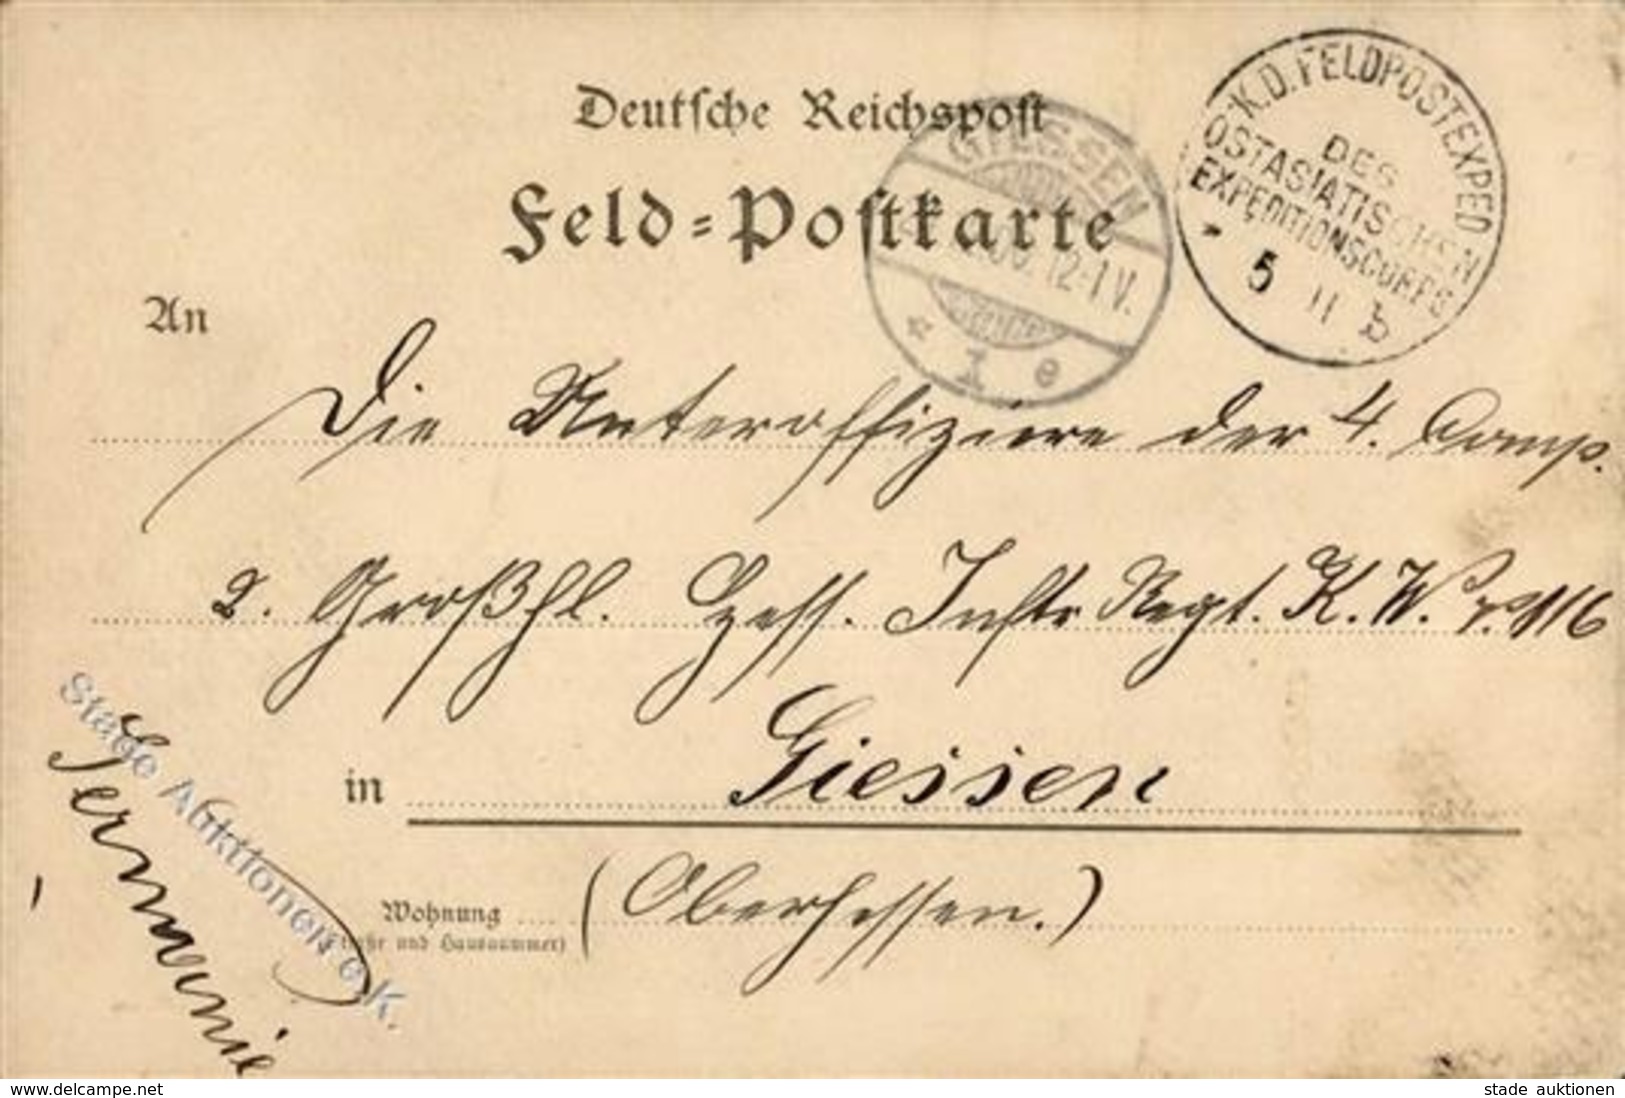 Deutsche Reichspost
Feld-Postkarte
K.D. FELDPOSTEXPED
DES
OSTASIATISCHEN
EXPEDITIONSCORPS
5 11 b
GIESSEN
12-1 V.
* 1 e
An
Die Unteroffiziere der 4. Comp.
2. Großhl. Hess. Inftr Regt. K. W. No 116
in Giessen
Wohnung (Oberhessen.)
(Straße und Hausnummer)
Germanie
Stade Auktionen e.K.
www.delcampe.net
stade auktionen